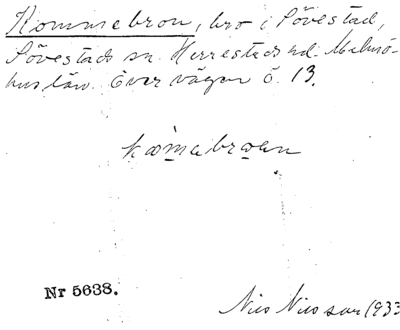 Kommebron, bro i Sövestad,
Sövestads sn. Herrestads hd. Malmö-
hus län. Över vägen Ö. 13.
kom̥ebroen
Nr 5638.
Nils Nilsson 1933